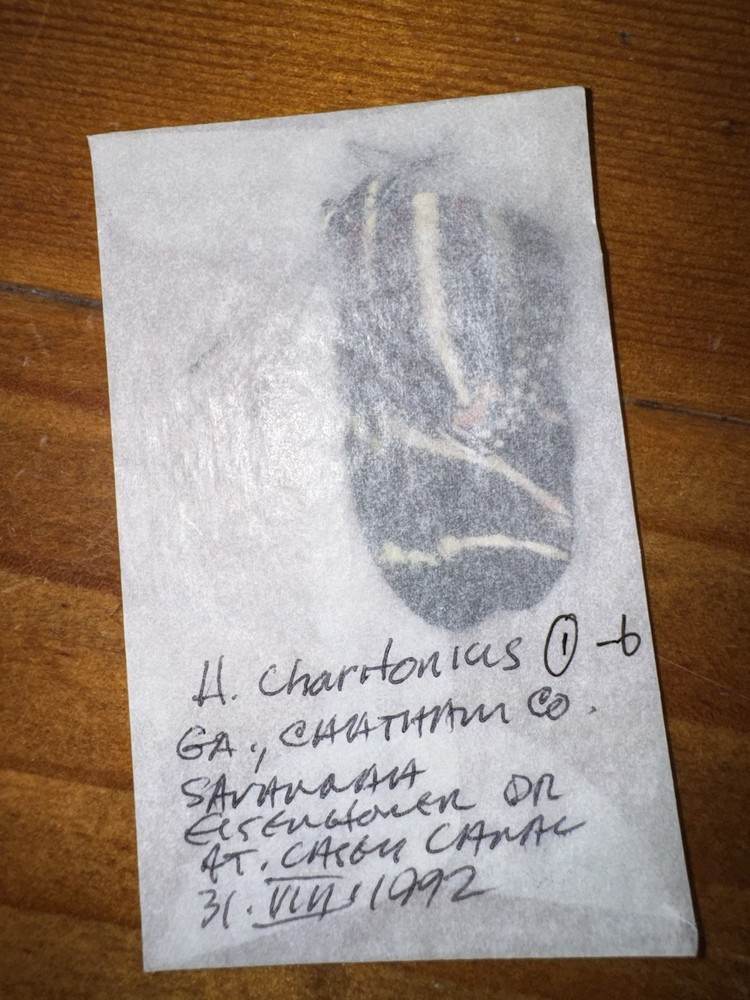 H. Charitonius ① -6
GA., CHATHAM CO.
SAVANNAH
EISENHOWER DR
AT. CASEY CANAL
31. VIII. 1992